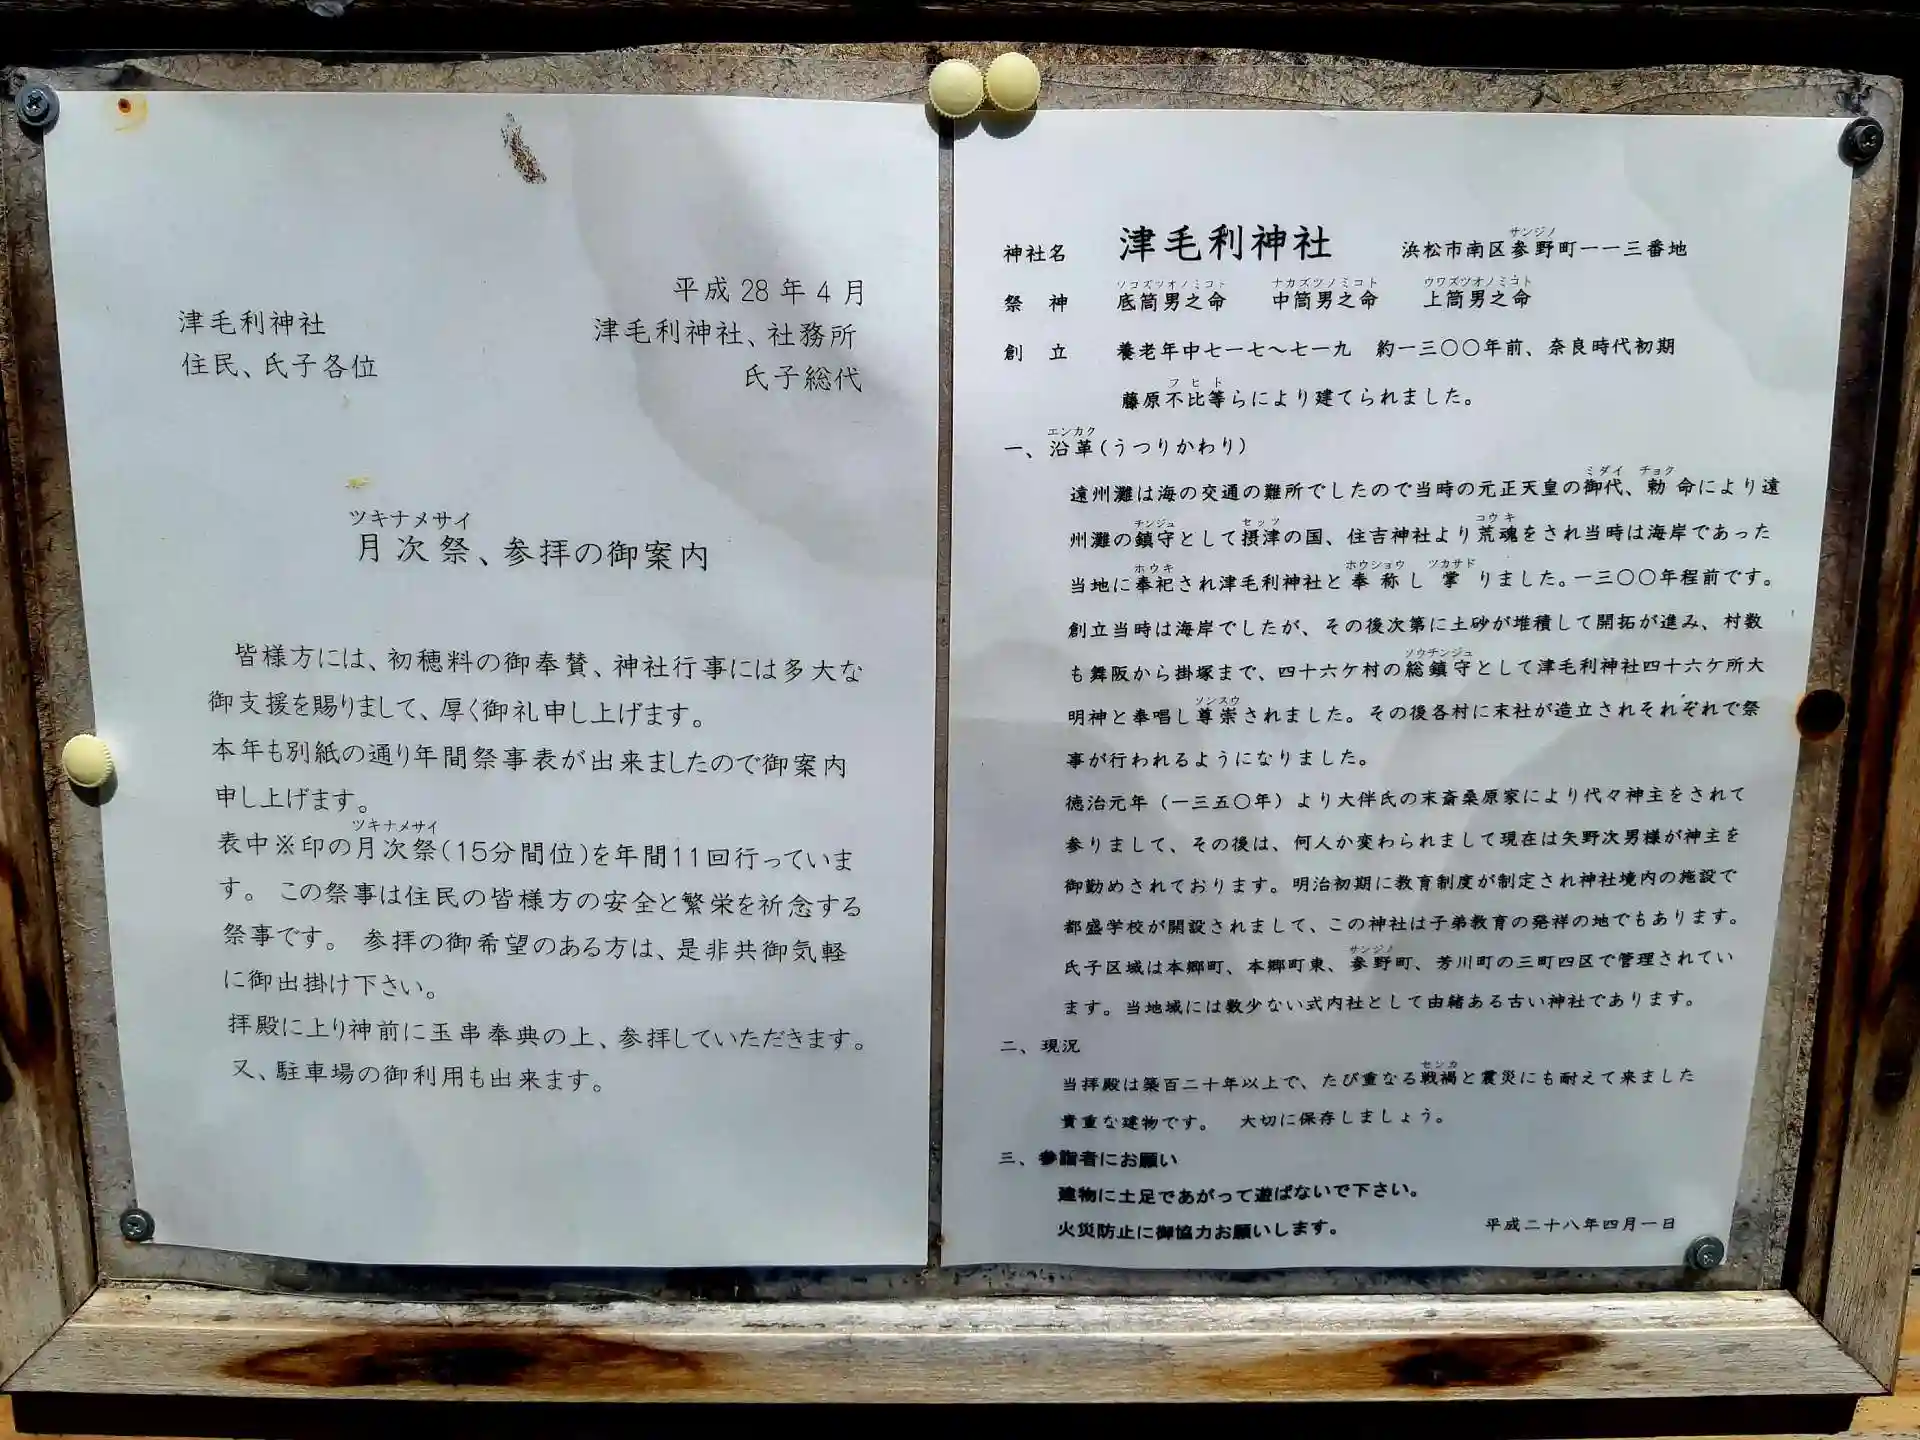 平成28年4月
津毛利神社
津毛利神社、社務所
住民、氏子各位
氏子総代
ツキナメサイ
月次祭、参拝の御案内
皆様方には、初穂料の御奉賛、神社行事には多大な
御支援を賜りまして、厚く御礼申し上げます。
本年も別紙の通り年間祭事表が出来ましたので御案内
申し上げます。
ツキナメサイ
表中※印の月次祭(15分間位)を年間11回行っていま
す。この祭事は住民の皆様方の安全と繁栄を祈念する
祭事です。 参拝の御希望のある方は、是非共御気軽
に御出掛け下さい。
拝殿に上り神前に玉串奉典の上、参拝していただきます。
又、駐車場の御利用も出来ます。
サンジノ
神社名 津毛利神社 浜松市南区参野町一一三番地
ソコズツオノミコト ナカズツノミコト ウワズツオノミコト
祭 神 底筒男之命 中筒男之命 上筒男之命
創 立 養老年中七一七～七一九 約一三〇〇年前、奈良時代初期
フヒト
藤原不比等らにより建てられました。
エンカク
一、沿革(うつりかわり)
ミダイ チョク
遠州灘は海の交通の難所でしたので当時の元正天皇の御代、勅命により遠
チンジュ セッツ コウキ
州灘の鎮守として摂津の国、住吉神社より荒魂をされ当時は海岸であった
ホウキ ホウショウ ツカサド
当地に奉祀され津毛利神社と奉称し掌りました。一三〇〇年程前です。
創立当時は海岸でしたが、その後次第に土砂が堆積して開拓が進み、村数
ソウチンジュ
も舞阪から掛塚まで、四十六ケ村の総鎮守として津毛利神社四十六ケ所大
ソンスウ
明神と奉唱し尊崇されました。その後各村に末社が造立されそれぞれで祭
事が行われるようになりました。
徳治元年（一三五〇年）より大伴氏の末斎桑原家により代々神主をされて
参りまして、その後は、何人か変わられまして現在は矢野次男様が神主を
御勤めされております。明治初期に教育制度が制定され神社境内の施設で
都盛学校が開設されまして、この神社は子弟教育の発祥の地でもあります。
サンジノ
氏子区域は本郷町、本郷町東、参野町、芳川町の三町四区で管理されてい
ます。当地域には数少ない式内社として由緒ある古い神社であります。
二、現況
センカ
当拝殿は築百二十年以上で、たび重なる戦禍と震災にも耐えて来ました
貴重な建物です。 大切に保存しましょう。
三、参詣者にお願い
建物に土足であがって遊ばないで下さい。
火災防止に御協力お願いします。
平成二十八年四月一日